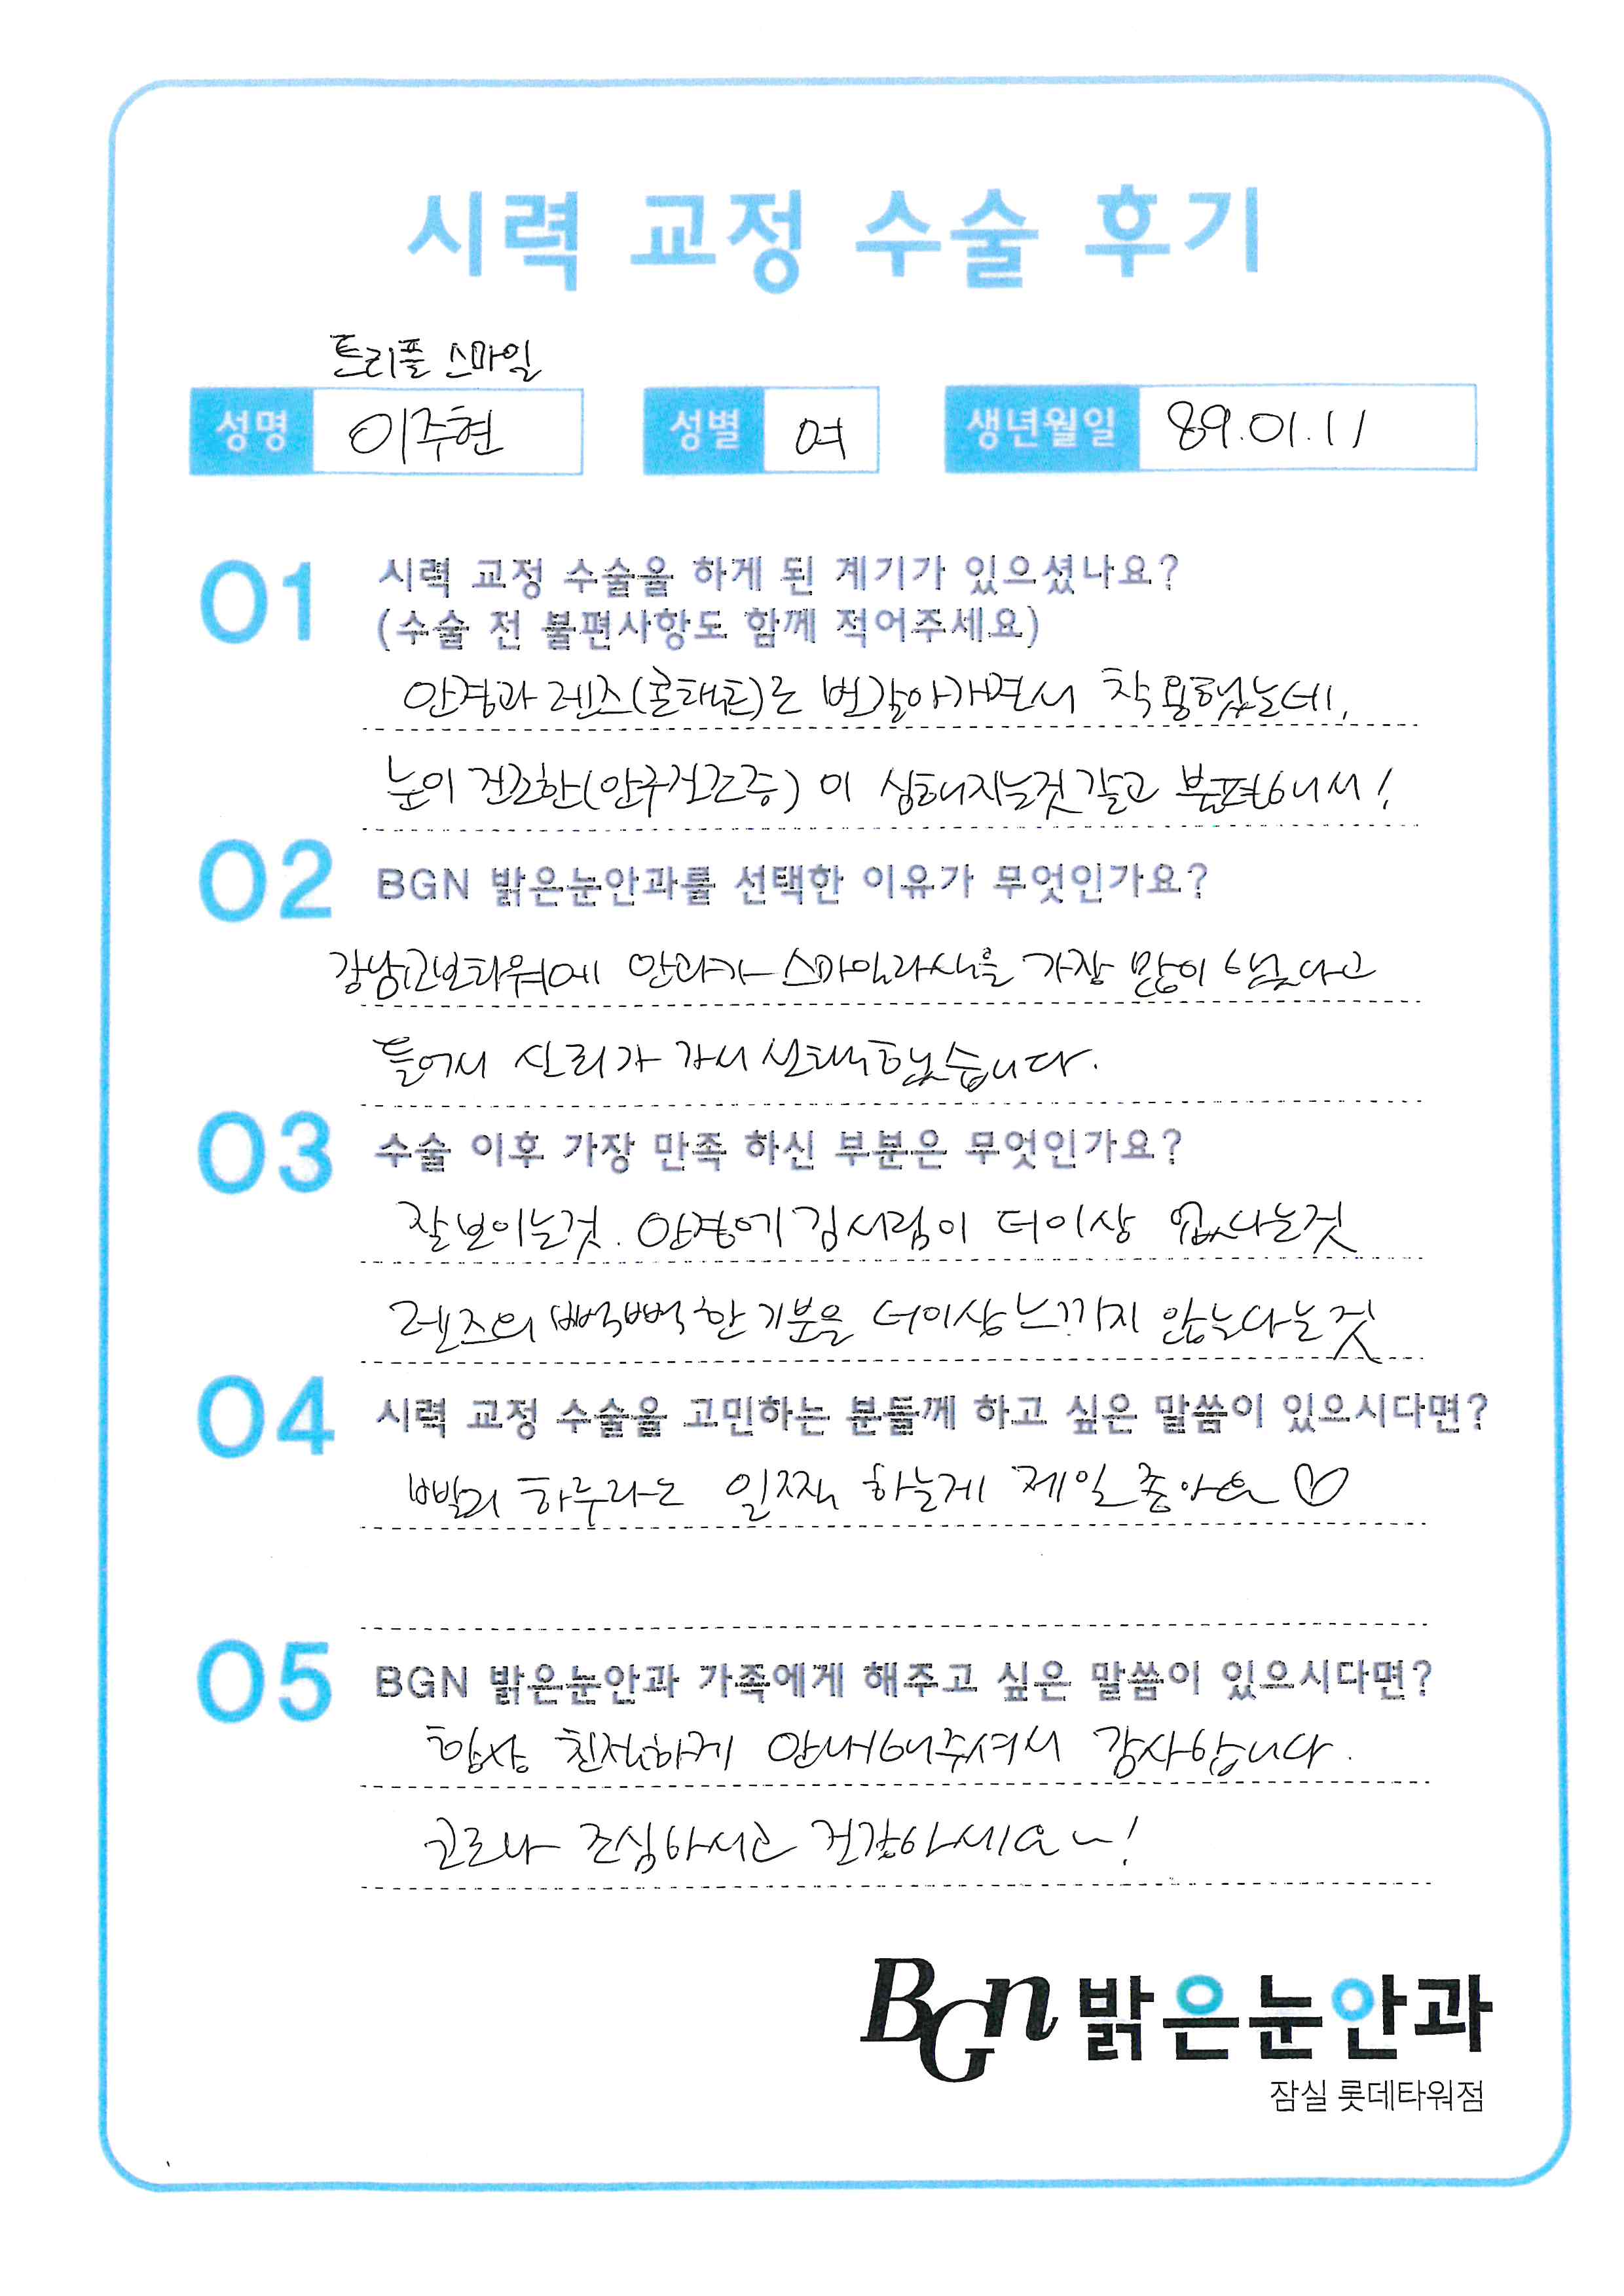 시력 교정 수술 후기
트리플 스마일
성명 이주현 성별 여 생년월일 89.01.11
01 시력 교정 수술을 하게 된 계기가 있으셨나요?
(수술 전 불편사항도 함께 적어주세요)
안경과 렌즈(콘택트)로 번갈아가면서 착용했는데,
눈이 건조한(안구건조증)이 심해지는것 같고 불편해서!
02 BGN 밝은눈안과를 선택한 이유가 무엇인가요?
강남교보타워에 안과가 스마일라식을 가장 많이 했다고
들어서 신뢰가 가서 선택했습니다.
03 수술 이후 가장 만족 하신 부분은 무엇인가요?
잘보이는것. 안경에 김서림이 더이상 없다는것
렌즈의 뻑뻑한 기분을 더이상 느끼지 않는다는것
04 시력 교정 수술을 고민하는 분들께 하고 싶은 말씀이 있으시다면?
빨리 하루라도 일찍 하는게 제일 좋아요♡
05 BGN 밝은눈안과 가족에게 해주고 싶은 말씀이 있으시다면?
항상 친절하게 안내해주셔서 감사합니다.
코로나 조심하시고 건강하세요~!
BGn 밝은눈안과
잠실 롯데타워점